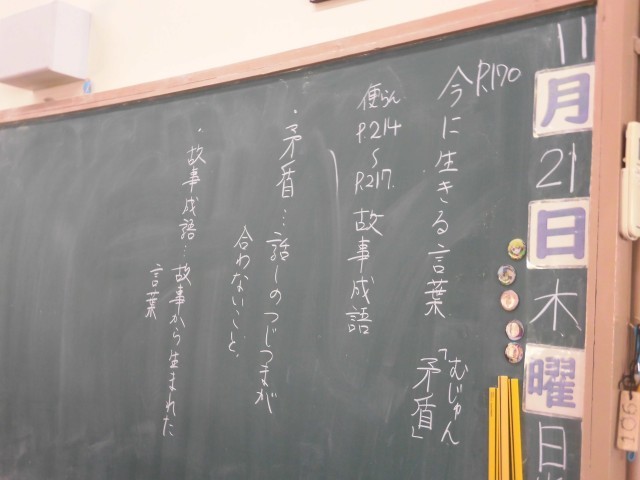 11月21日木曜日
P.170
今に生きる言葉
むじゅん
「矛盾」
便らん
P.214
〜
P.217
故事成語
・矛盾…話しのつじつまが
合わないこと。
・故事成語…故事から生まれた
言葉
106